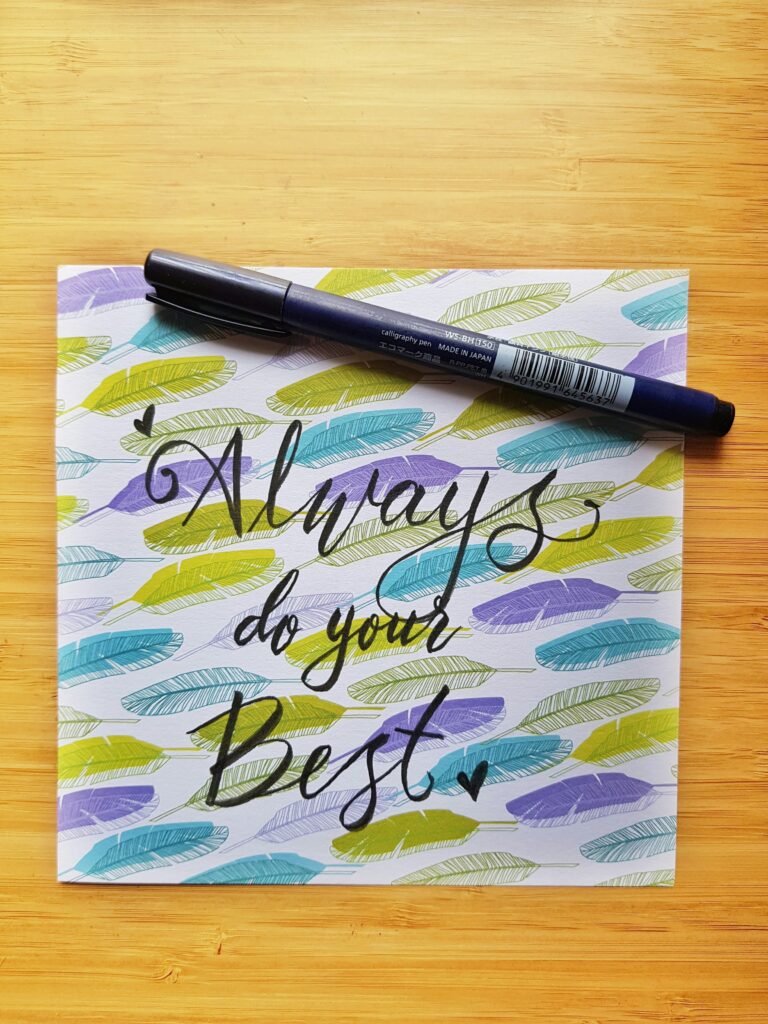 WS-BH(150)
calligraphy pen MADE IN JAPAN
エコマーク商品
4 901991 645637
Always
do your
Best